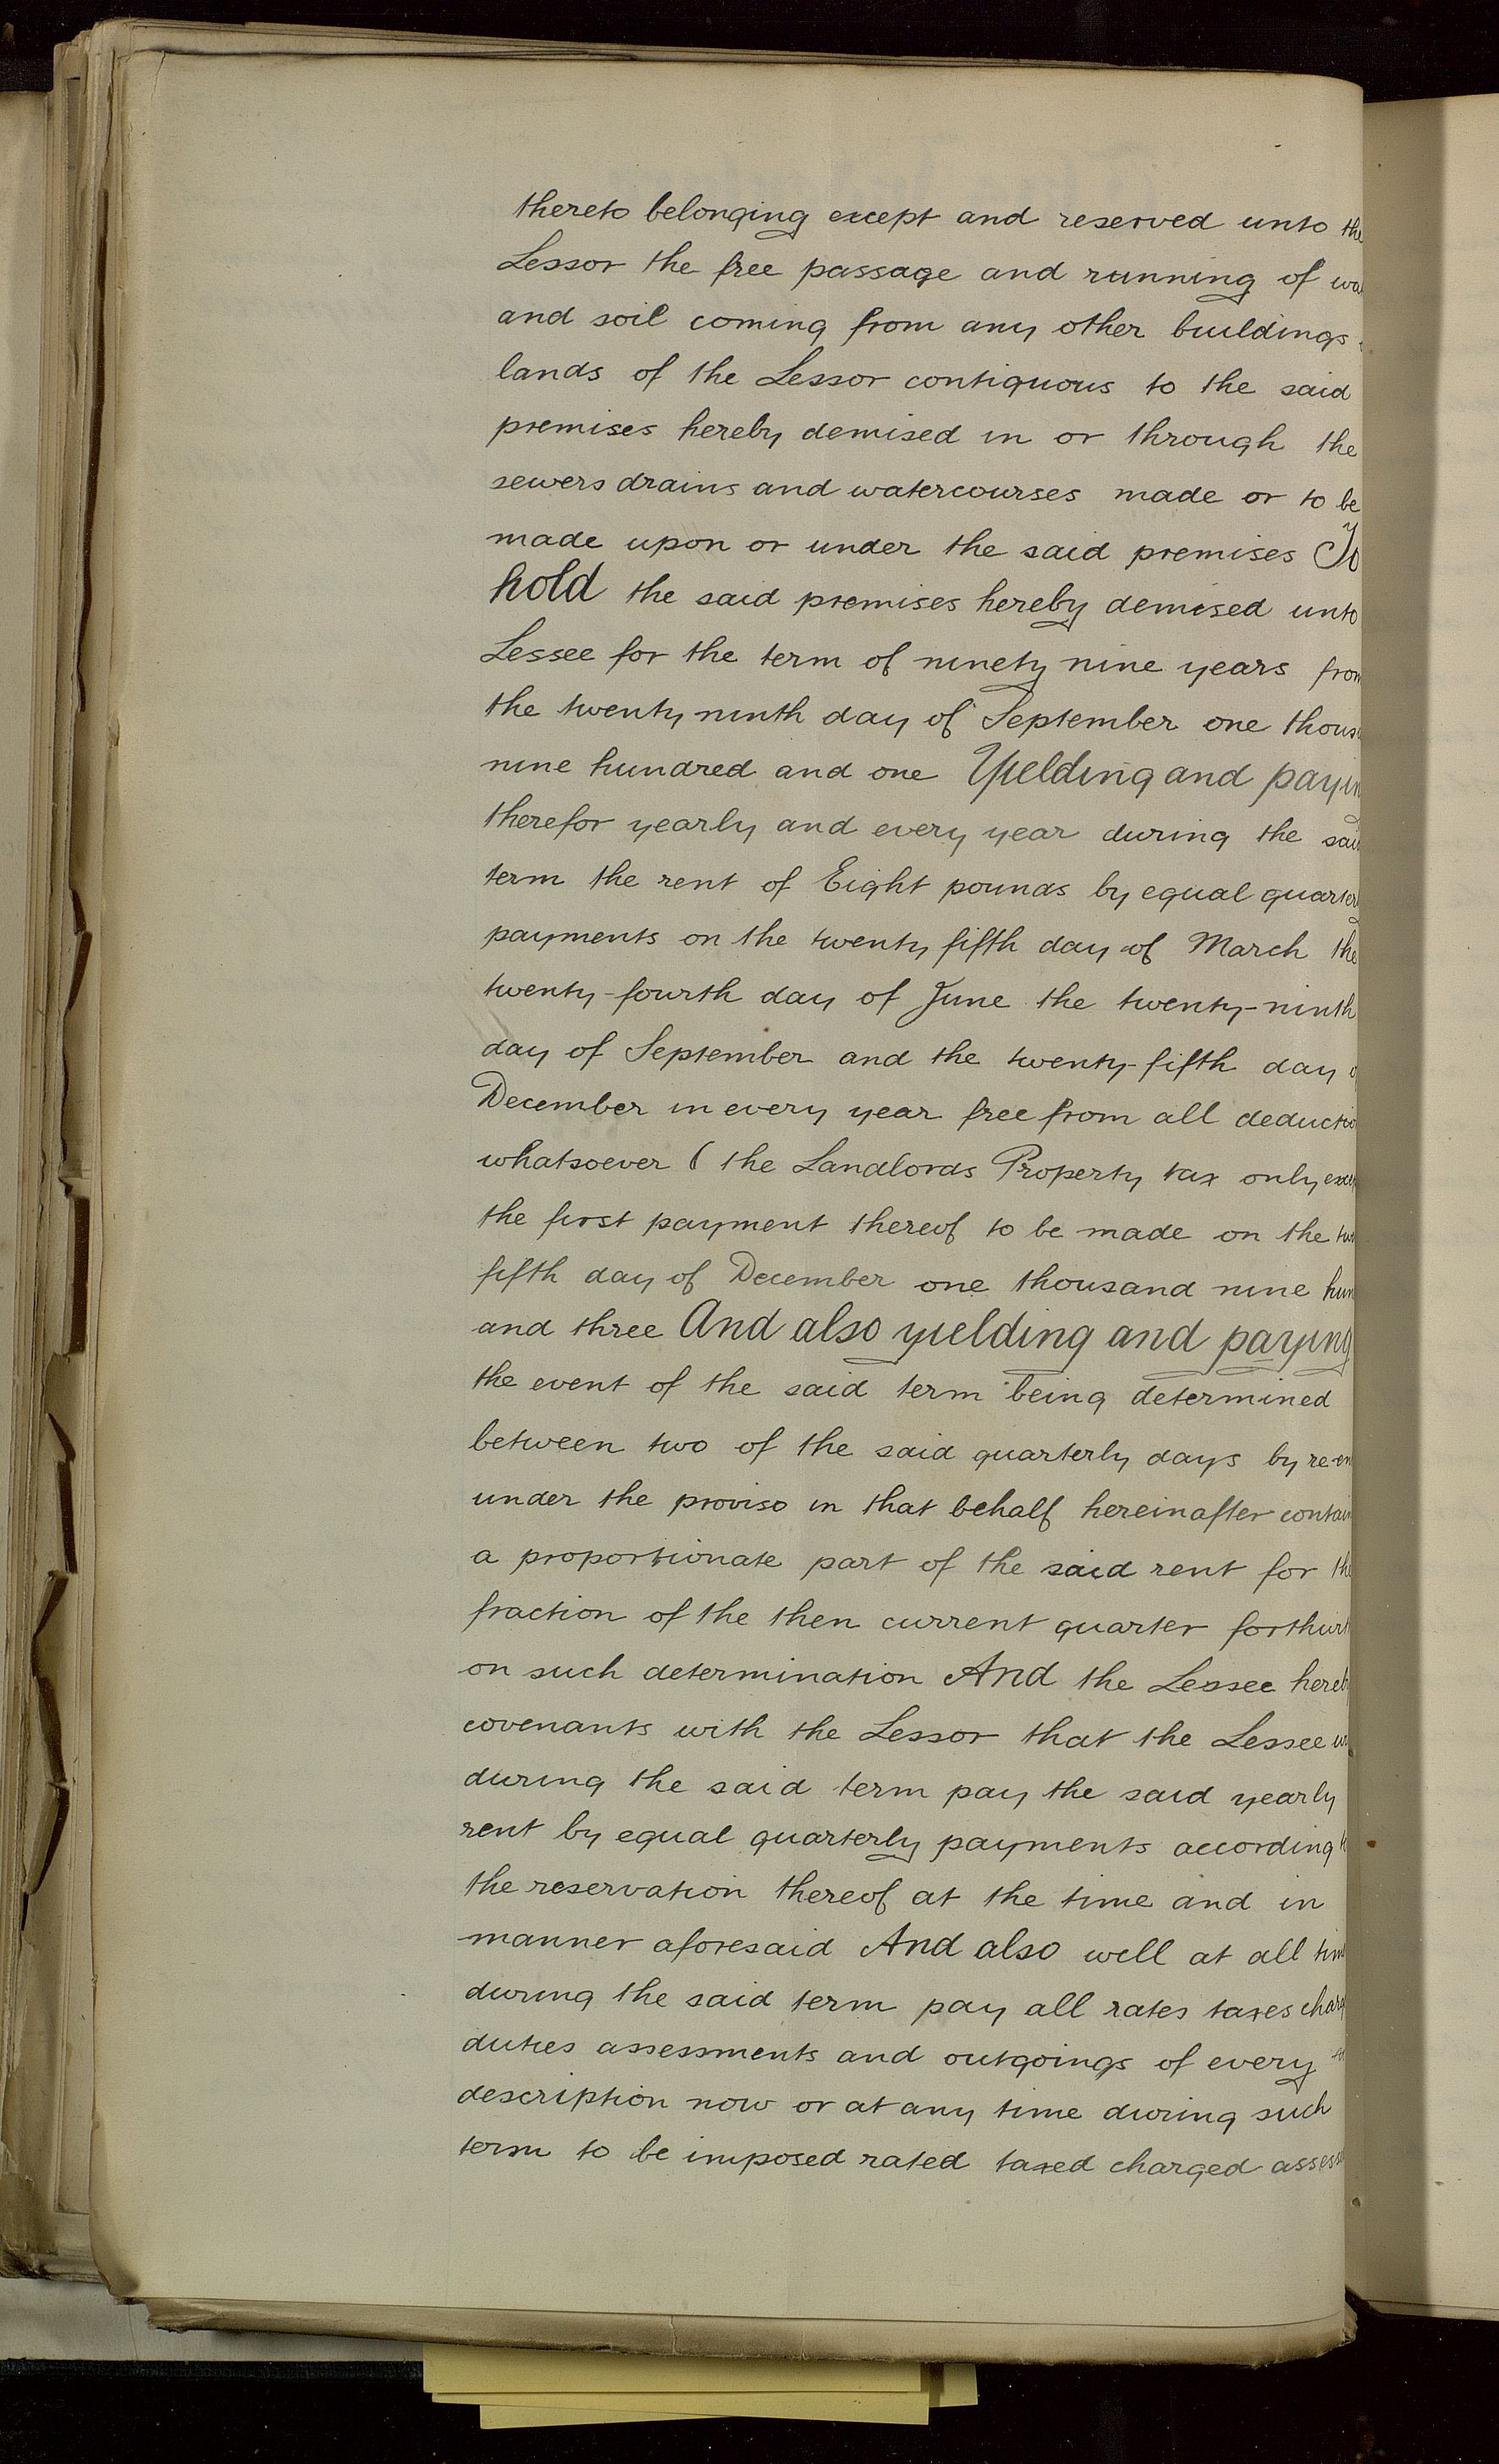 thereto belonging except and reserved unto the
Lessor the free passage and running of wa
and soil coming from any other buildings
lands of the Lessor contiguous to the said
premises hereby demised in or through the
sewers drains and watercourses made or to be
made upon or under the said premises To
hold the said premises hereby demised unto
Lessee for the term of ninety nine years from
the twenty ninth day of September one thous
nine hundred and one Yielding and payin
therefor yearly and every year during the said
term the rent of Eight pounds by equal quarterly
payments on the twenty fifth day of March the
twenty-fourth day of June the twenty-ninth
day of September and the twenty-fifth day o
December in every year free from all deductio
whatsoever ( the Landlords Property tax only excep
the first payment thereof to be made on the tw
fifth day of December one thousand nine hun
and three And also yielding and paying
the event of the said term being determined
between two of the said quarterly days by re-en
under the proviso in that behalf hereinafter contain
a proportionate part of the said rent for the
fraction of the then current quarter forthwit
on such determination And the Lessee hereb
covenants with the Lessor that the Lessee w
during the said term pay the said yearly
rent by equal quarterly payments according t
the reservation thereof at the time and in
manner aforesaid And also well at all tim
during the said term pay all rates taxes charg
duties assessments and outgoings of every
description now or at any time during such
term to be imposed rated taxed charged assess